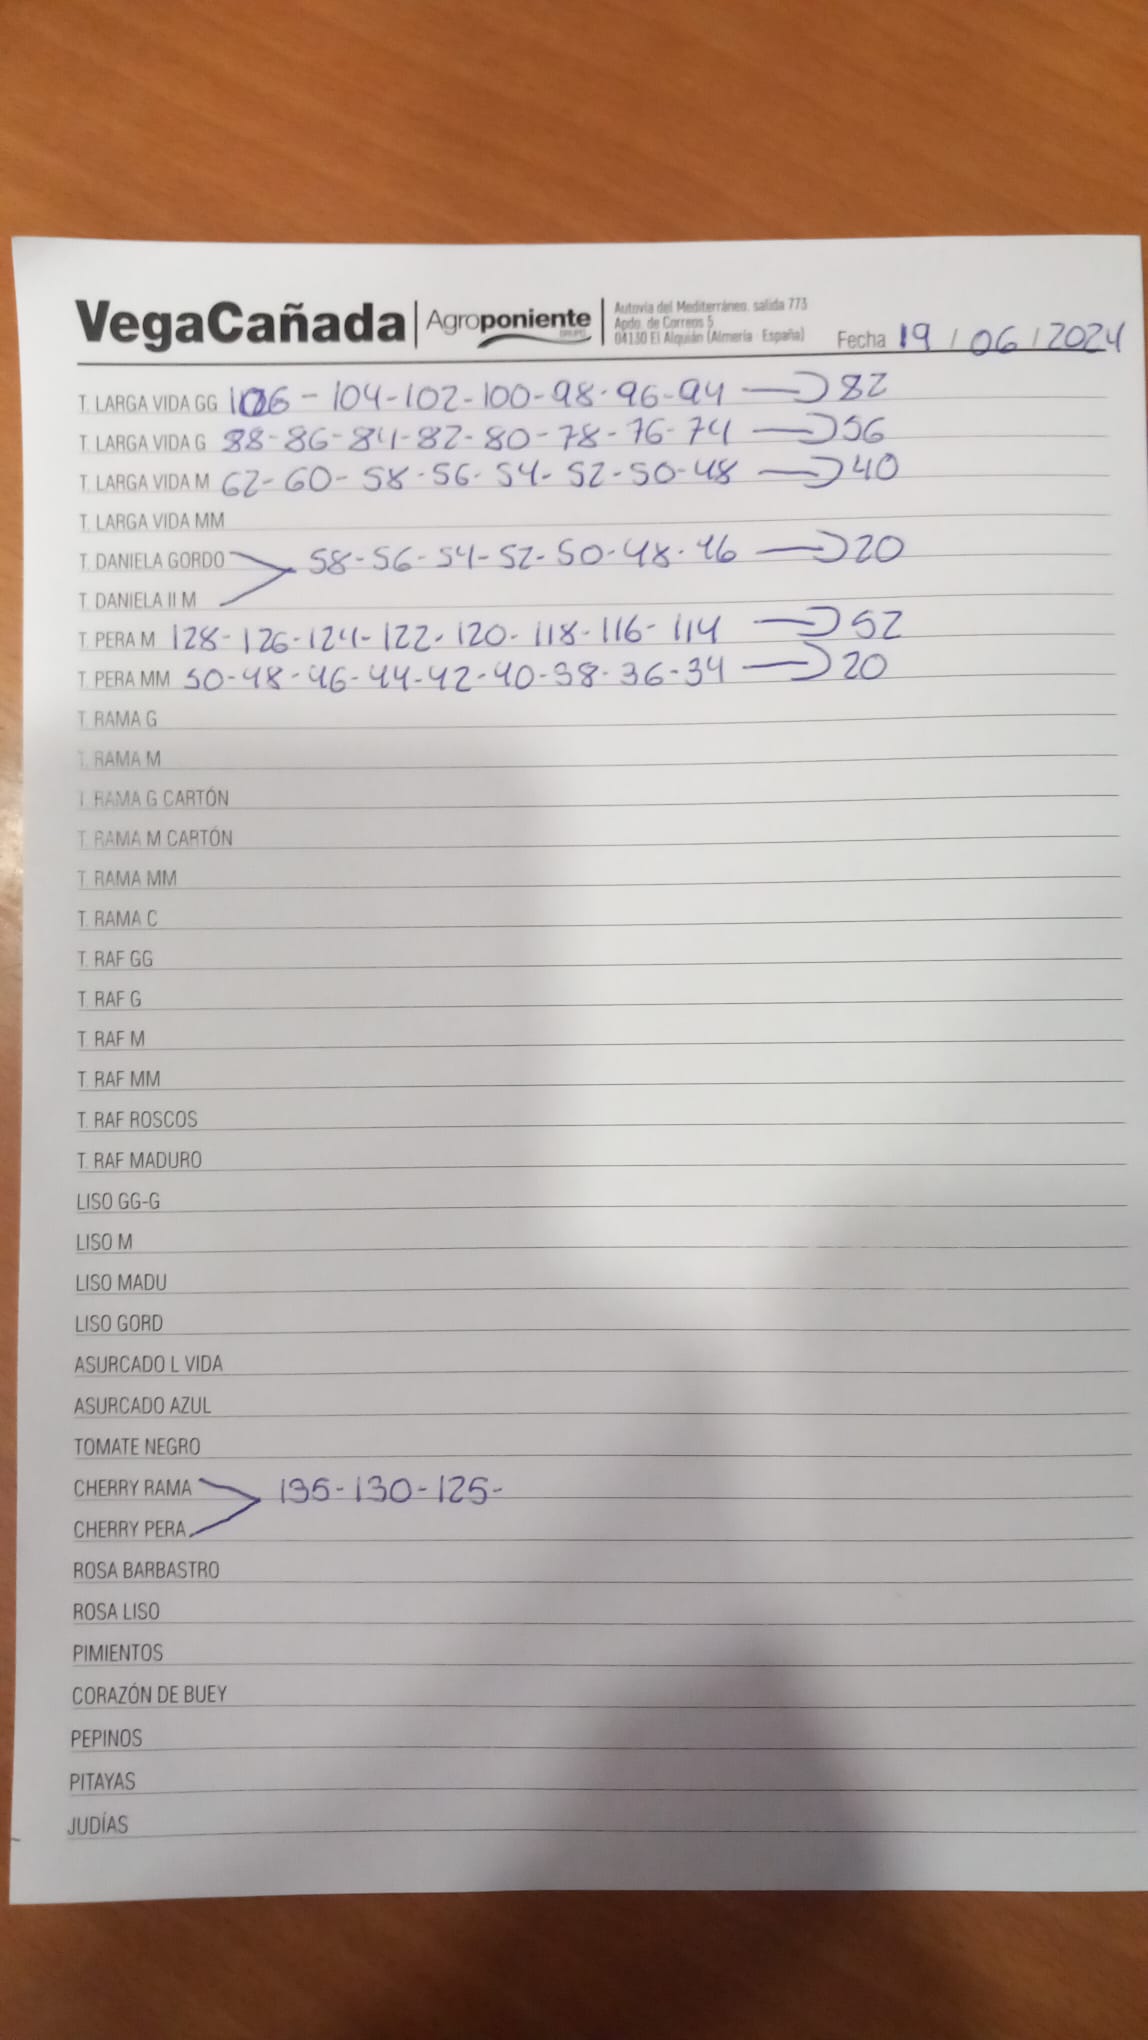 VegaCañada | Agroponiente GRUPO | Autovía del Mediterráneo. salida 773
Apdo. de Correos 5
04130 El Alquián (Almería España)
Fecha 19 / 06 / 2024
T. LARGA VIDA GG 106 - 104-102-100-98-96-94 → 82
T. LARGA VIDA G 88-86-84-82-80-78-76-74 → 56
T. LARGA VIDA M 62-60-58-56-54-52-50-48 → 40
T. LARGA VIDA MM
T. DANIELA GORDO 58-56-54-52-50-48-46 → 20
T. DANIELA II M
T. PERA M 128-126-124-122-120-118-116-114 → 52
T. PERA MM 50-48-46-44-42-40-38-36-34 → 20
T. RAMA G
T. RAMA M
T. RAMA G CARTÓN
T. RAMA M CARTÓN
T. RAMA MM
T. RAMA C
T. RAF GG
T. RAF G
T. RAF M
T. RAF MM
T. RAF ROSCOS
T. RAF MADURO
LISO GG-G
LISO M
LISO MADU
LISO GORD
ASURCADO L VIDA
ASURCADO AZUL
TOMATE NEGRO
CHERRY RAMA 135-130-125-
CHERRY PERA
ROSA BARBASTRO
ROSA LISO
PIMIENTOS
CORAZÓN DE BUEY
PEPINOS
PITAYAS
JUDÍAS